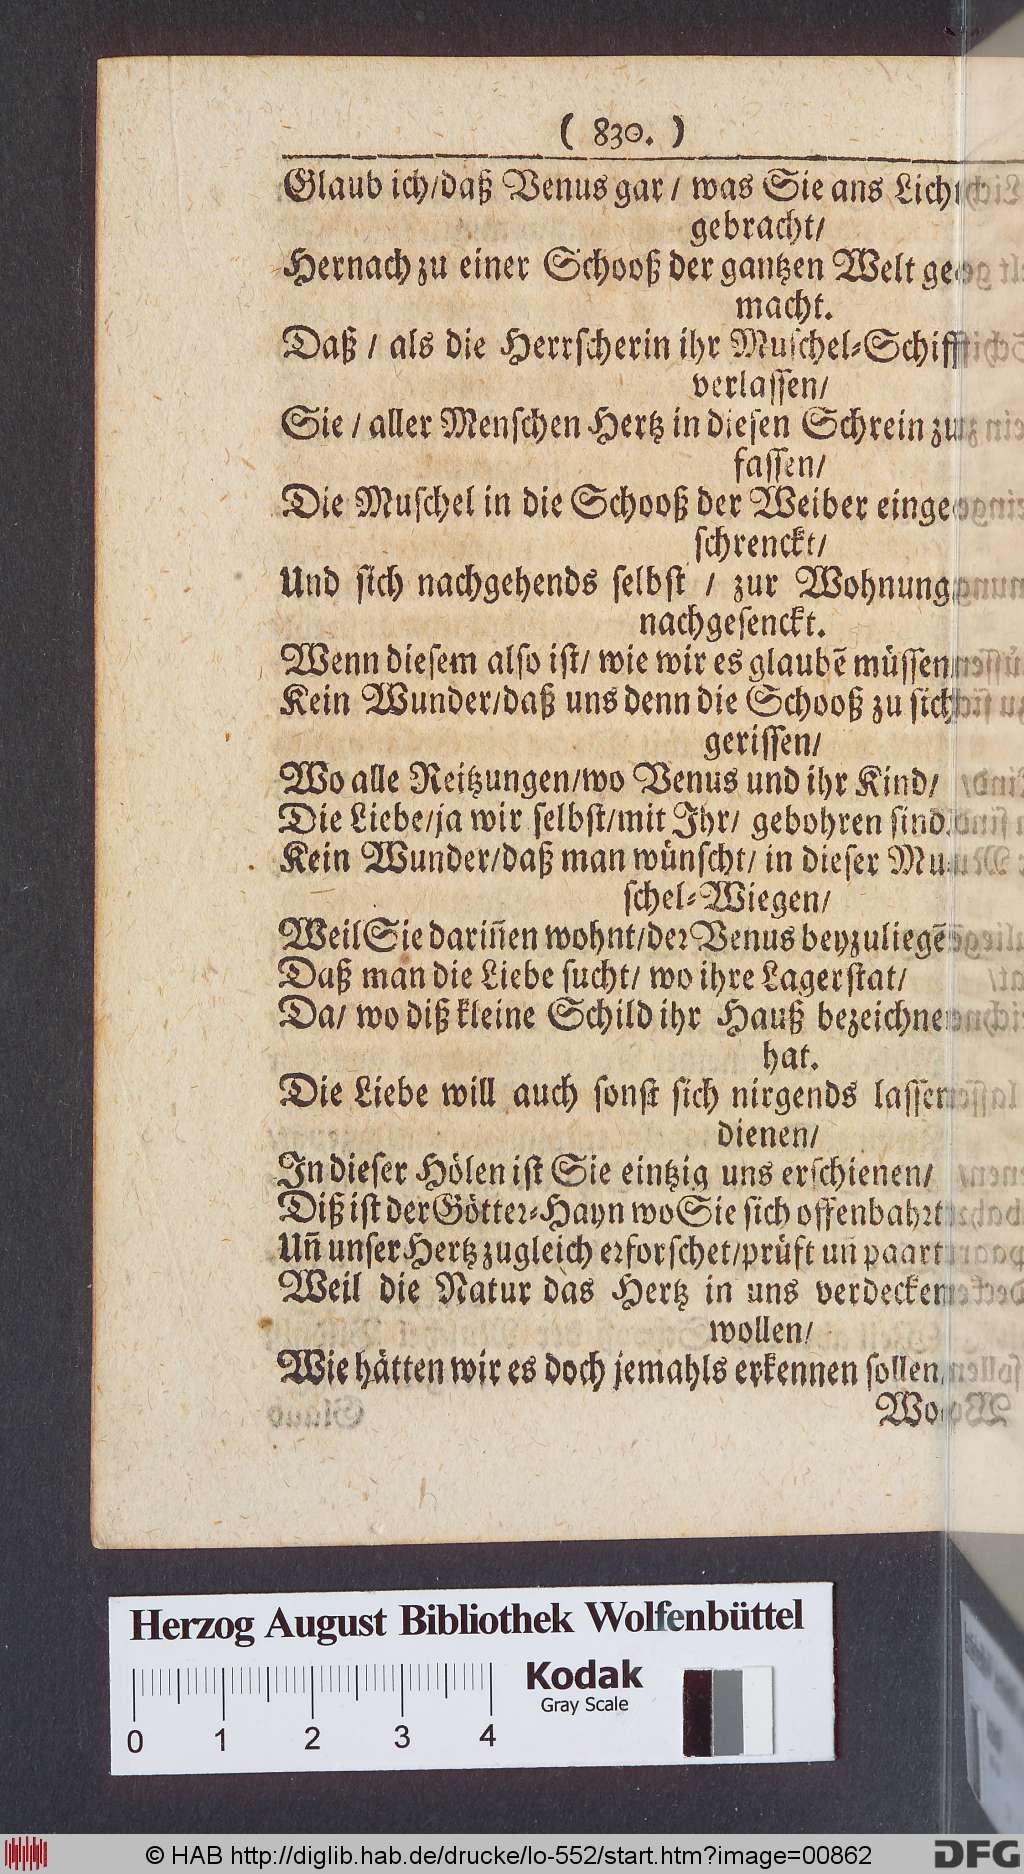 ( 830. )
Glaub ich/daß Venus gar / was Sie ans Licht
gebracht/
Hernach zu einer Schooß der gantzen Welt ge-
macht.
Daß / als die Herrscherin ihr Muschel-Schiff
verlassen/
Sie / aller Menschen Hertz in diesen Schrein zu
fassen/
Die Muschel in die Schooß der Weiber einge-
schrenckt/
Und sich nachgehends selbst / zur Wohnung
nachgesenckt.
Wenn diesem also ist/ wie wir es glaubẽ müssen
Kein Wunder/daß uns denn die Schooß zu sich
gerissen/
Wo alle Reitzungen/wo Venus und ihr Kind/
Die Liebe/ja wir selbst/mit Ihr/ gebohren sind.
Kein Wunder/daß man wünscht/ in dieser Mu-
schel-Wiegen/
Weil Sie dariñen wohnt/der Venus beyzuliegẽ
Daß man die Liebe sucht/ wo ihre Lagerstat/
Da/ wo diß kleine Schild ihr Hauß bezeichnet
hat.
Die Liebe will auch sonst sich nirgends lassen
dienen/
In dieser Hölen ist Sie eintzig uns erschienen/
Diß ist der Götter-Hayn wo Sie sich offenbahrt
Uñ unser Hertz zugleich erforschet/prüft uñ paart
Weil die Natur das Hertz in uns verdecken
wollen/
Wie hätten wir es doch jemahls erkennen sollen
Wo
Herzog August Bibliothek Wolfenbüttel
Kodak
Gray Scale
0 1 2 3 4
© HAB http://diglib.hab.de/drucke/lo-552/start.htm?image=00862
DFG